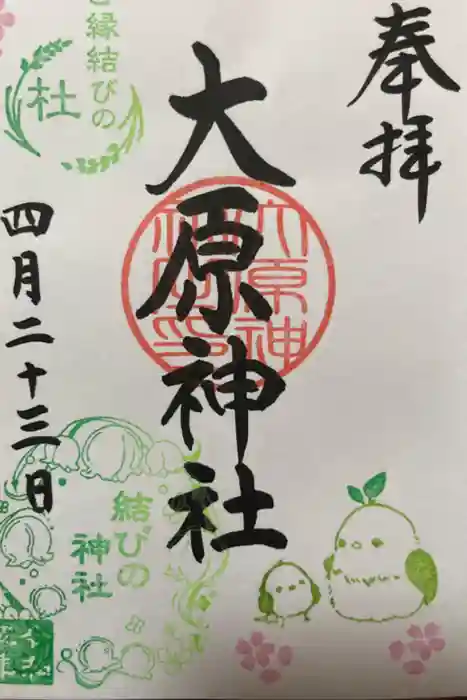 奉拝
大原神社
四月二十三日
ご縁結びの
社
結びの
神社